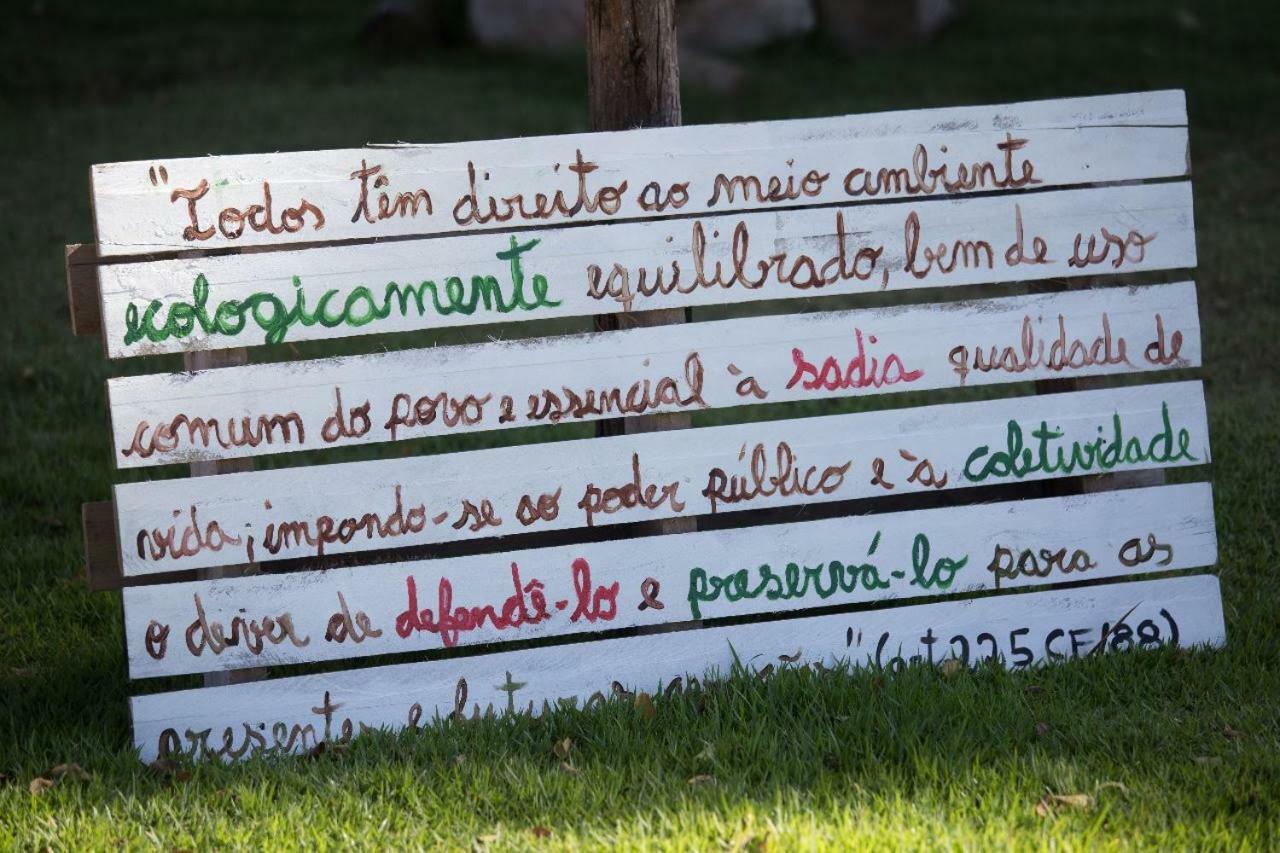 "Todos têm direito ao meio ambiente
ecologicamente equilibrado, bem de uso
comum do povo e essencial à sadia qualidade de
vida, impondo-se ao poder público e à coletividade
o dever de defendê-lo e preservá-lo para as
presentes e futuras " (art 225 CF/88)